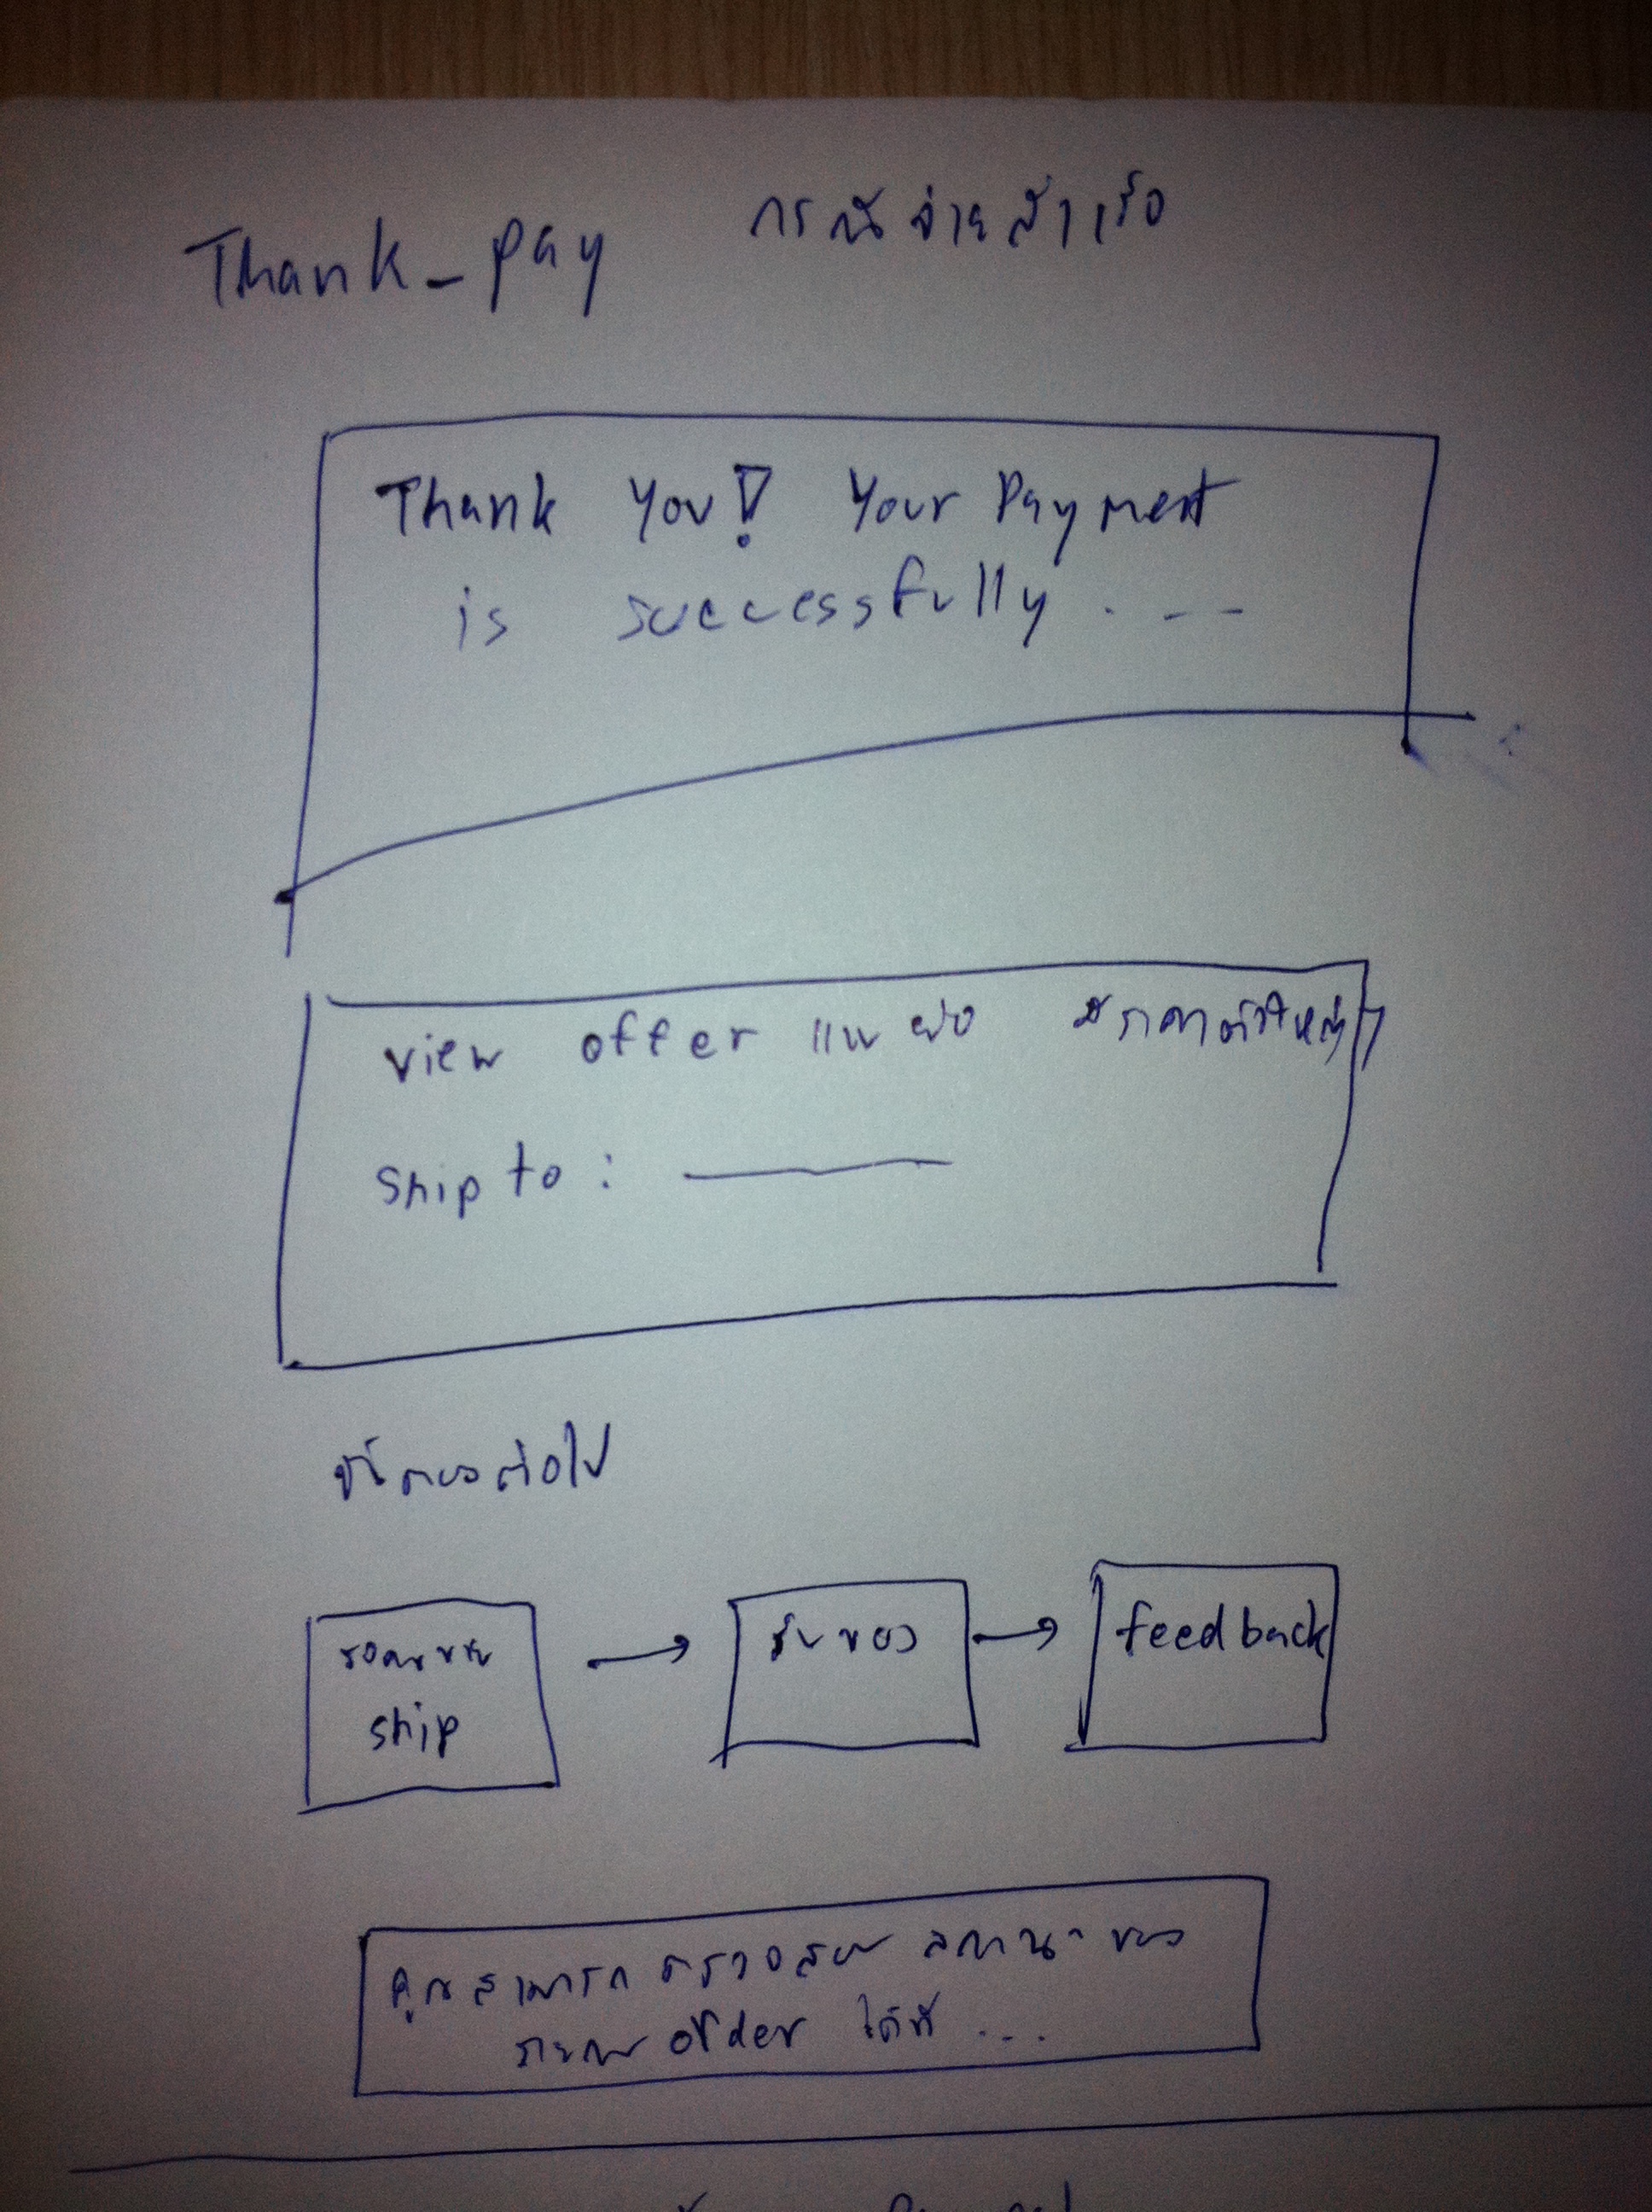 Thank_pay กรณีจ่ายสำเร็จ
Thank You! Your Payment
is successfully . - -
view offer แบบย่อ มีราคาตัวใหญ่ๆ
Ship to :
ขั้นตอนต่อไป
รอคนขาย
ship
รับของ
feedback
คุณสามารถตรวจสอบ สถานะ ของ
รายการ order ได้ที่ ...